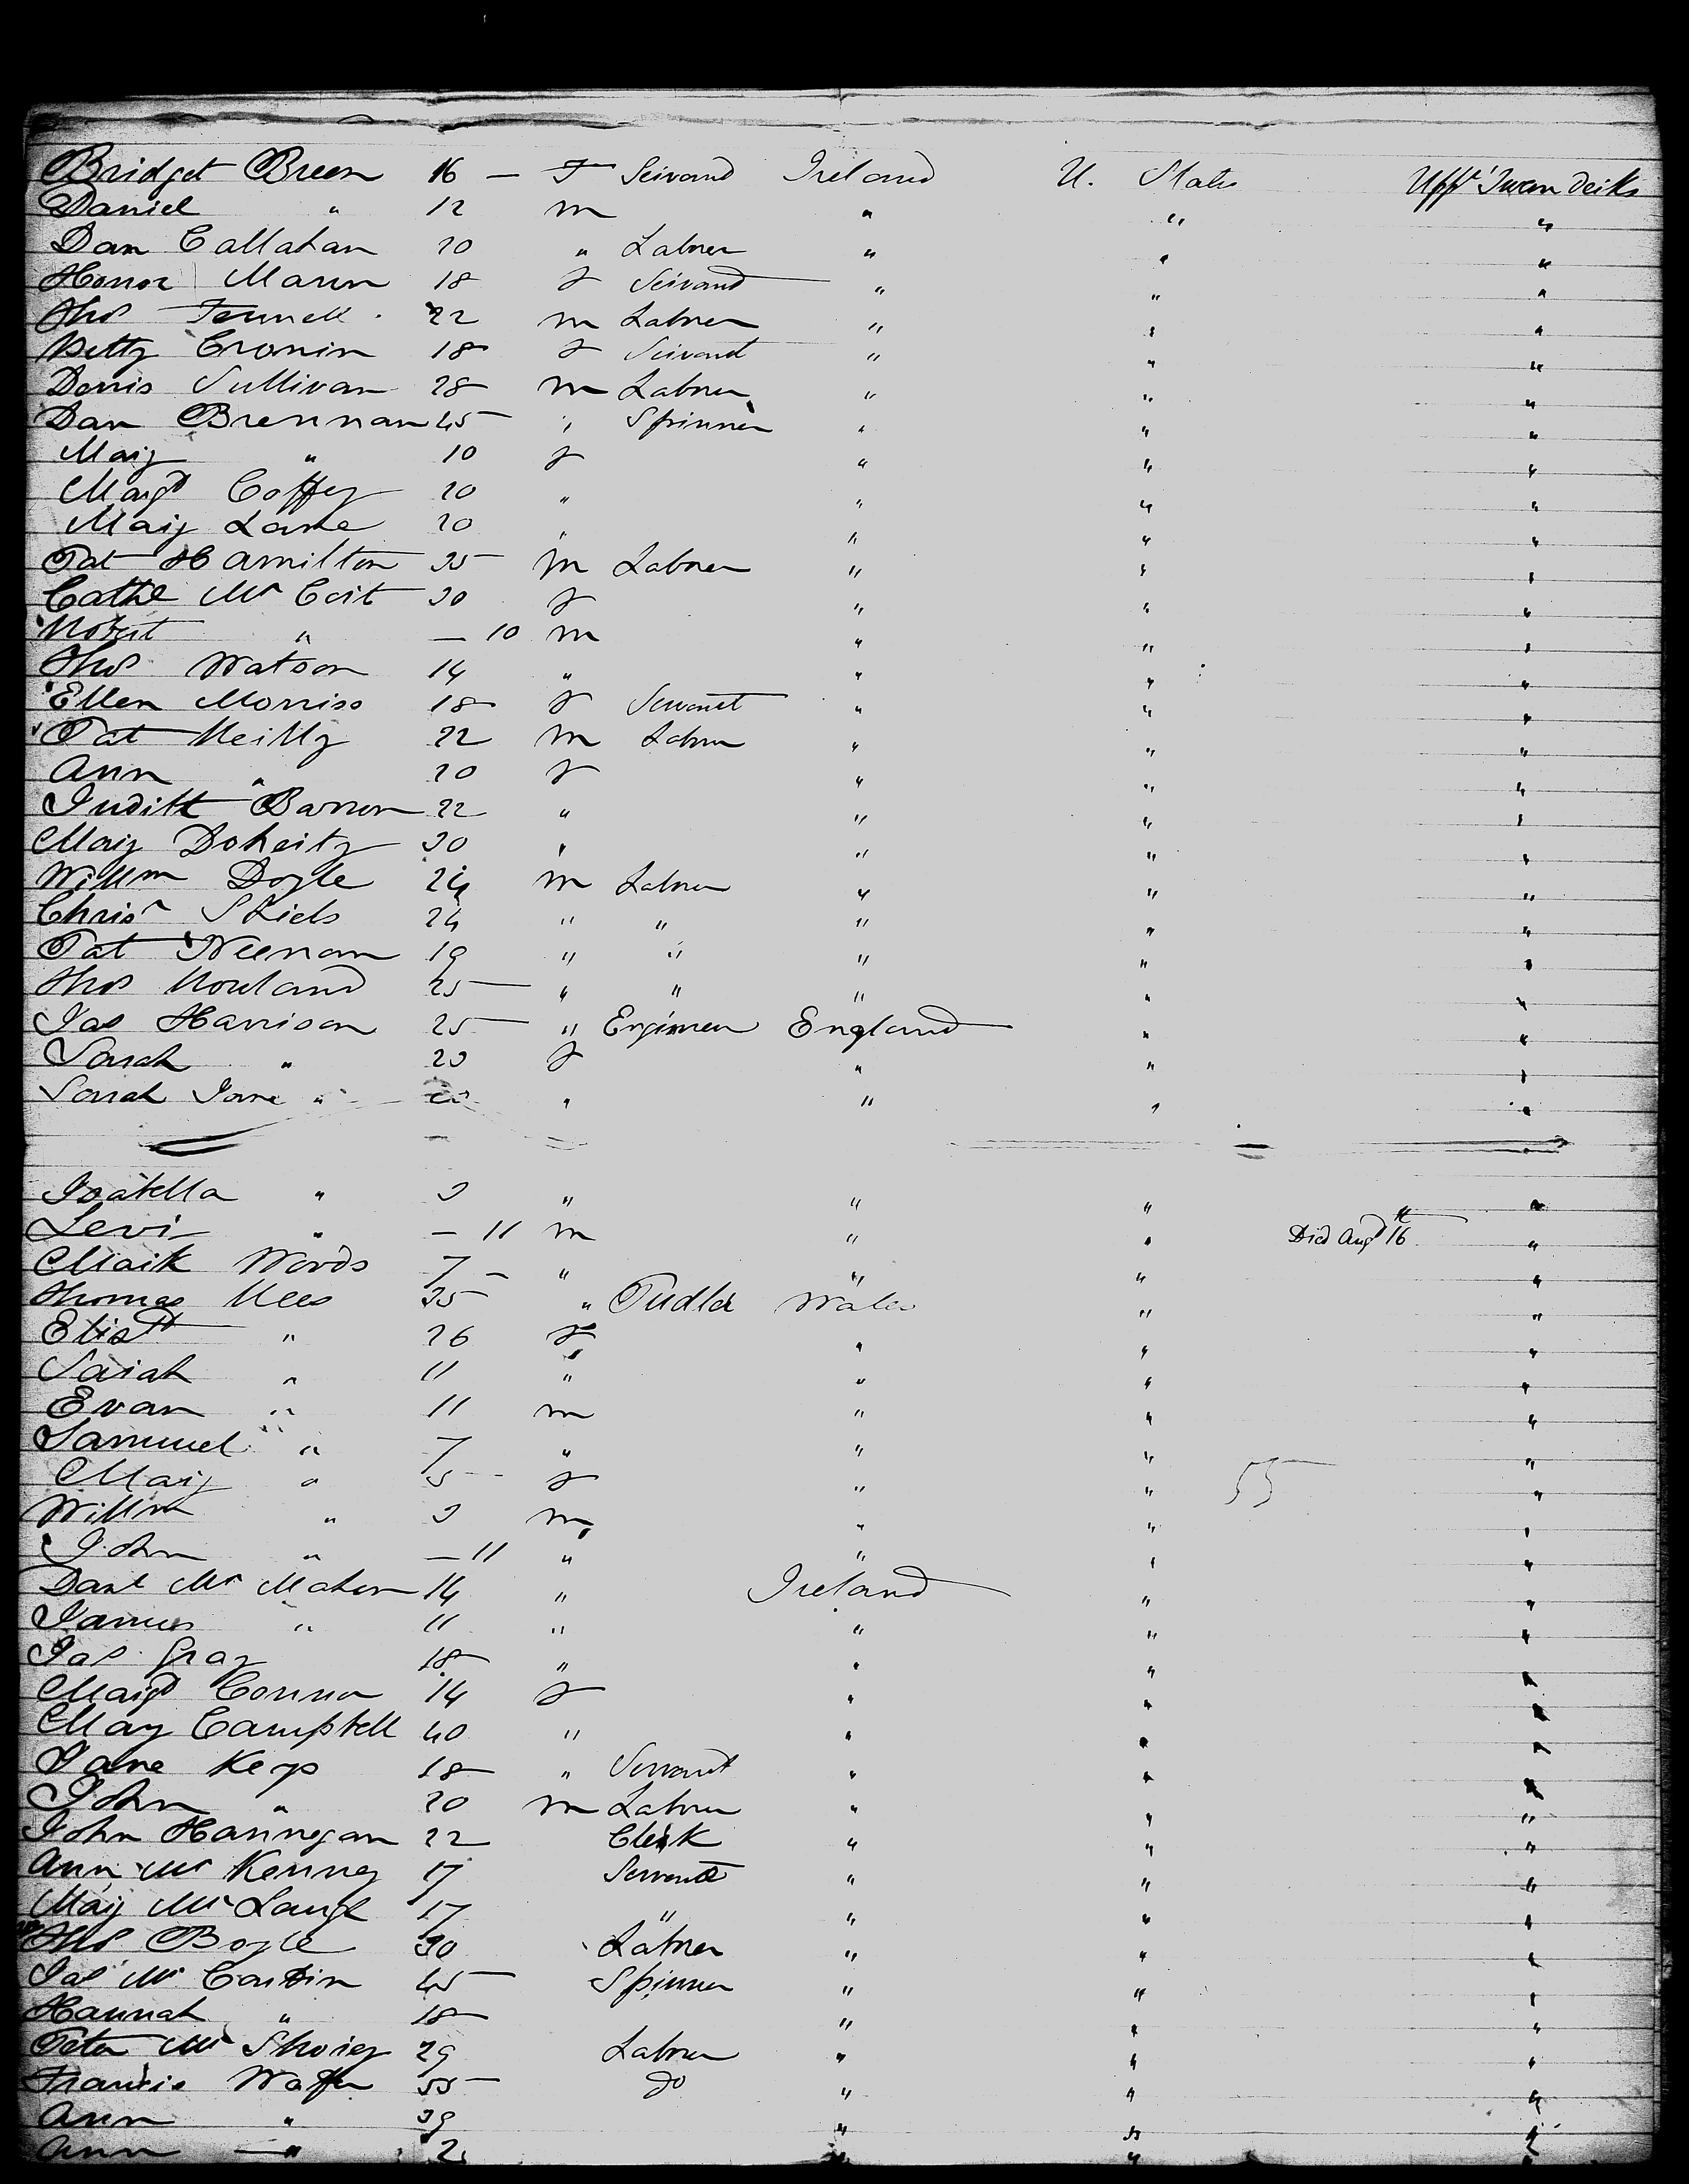 Bridget Breen 16 — F Servand Ireland U. States Upp^r Tween Decks
Daniel " 12 m " " "
Dan Callahan 20 " Labrer " " "
Honor Mann 18 F Servand " " "
Thos Fennell 22 m Labrer " " "
Betty Cronin 18 F Servant " " "
Denis Sullivan 28 m Labrer " " "
Dan Brennan 45 " Spinner " " "
Mary " 10 F " " "
Margt Coffey 20 " " " "
Mary Lane 20 " " " "
Pat Hamilton 35 m Labrer " " "
Cathe Mc 30 F " " "
Robert " — 10 m " " "
Thos Watson 14 " " " "
Ellen Morriss 18 F Servant " " "
Pat Reilly 22 m Labrer " " "
Ann " 20 F " " "
Judith Barron 22 " " " "
Mary Doherty 30 " " " "
Willm Doyle 24 m Labrer " " "
Chrisr Shiels 24 " " " " "
Pat Neenan 19 " " " " "
Thos Rowland 25 " " " " "
Jas Harrison 25 " Engineer England " "
Sarah " 23 F " " "
Sarah Jane " " " " "
Isabella " 3 " " " "
Levi " — 11 m " " Died Augt 16th "
Mark Woods 7 — " " " "
Thomas Rees 35 " Pudler Wales " "
Elisth " 26 F " " "
Sarah " 11 " " " "
Evan " 11 m " " "
Samuel " 7 " " " "
Mary " 5 F " " 55 "
Willm " 3 m " " "
John " — 11 " " " "
Danl Mc Mahon 14 " Ireland " "
James " 11 " " " "
Jas Gray 18 " " " "
Margt Connor 14 F " " "
Mary Campbell 40 " " " "
Jane Keys 18 " Servant " " "
John " 20 m Labrer " " "
John Hannegan 22 Clerk " " "
Ann Mc Kenney 17 Servant " " "
Mary Mc Laugl 17 " " " "
Thos Boyle 30 Labrer " " "
Jas Mc 45 Spinner " " "
Hannah " 18 " " "
Peter Mc 29 Labrer " " "
Francis 55 do " " "
Ann " 39 " " "
Ann — " 2 " " "